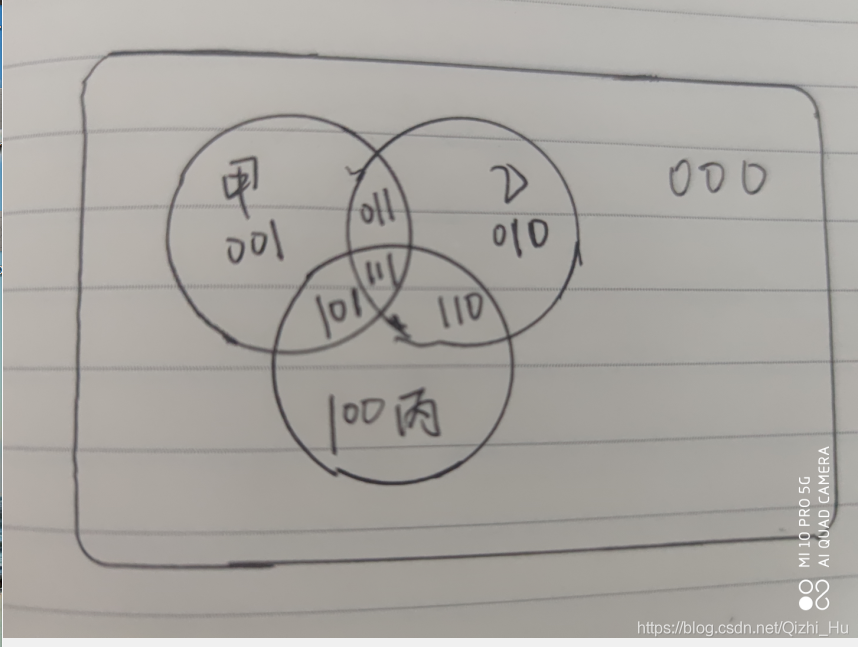 甲
001
011
乙
010
000
111
101
110
100丙
MI 10 PRO 5G
AI QUAD CAMERA
https://blog.csdn.net/Qizhi_Hu